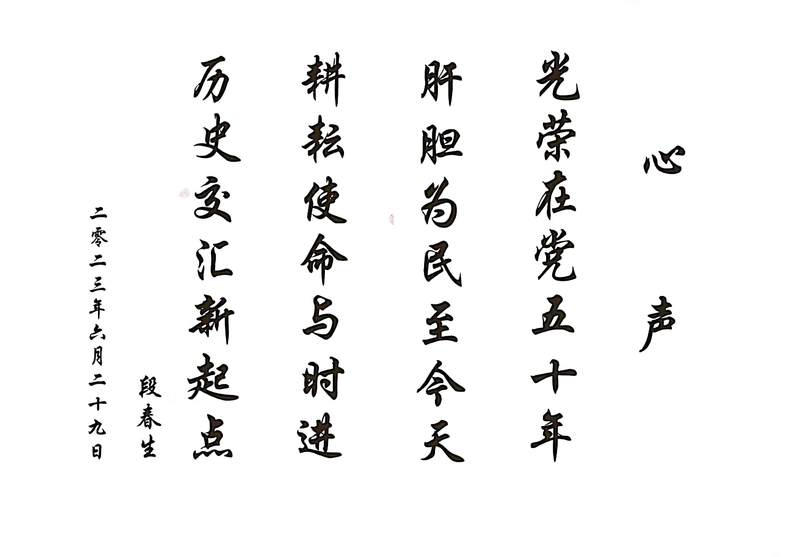 心声
光荣在党五十年
肝胆为民至今天
耕耘使命与时进
历史交汇新起点
段春生
二零二三年六月二十九日